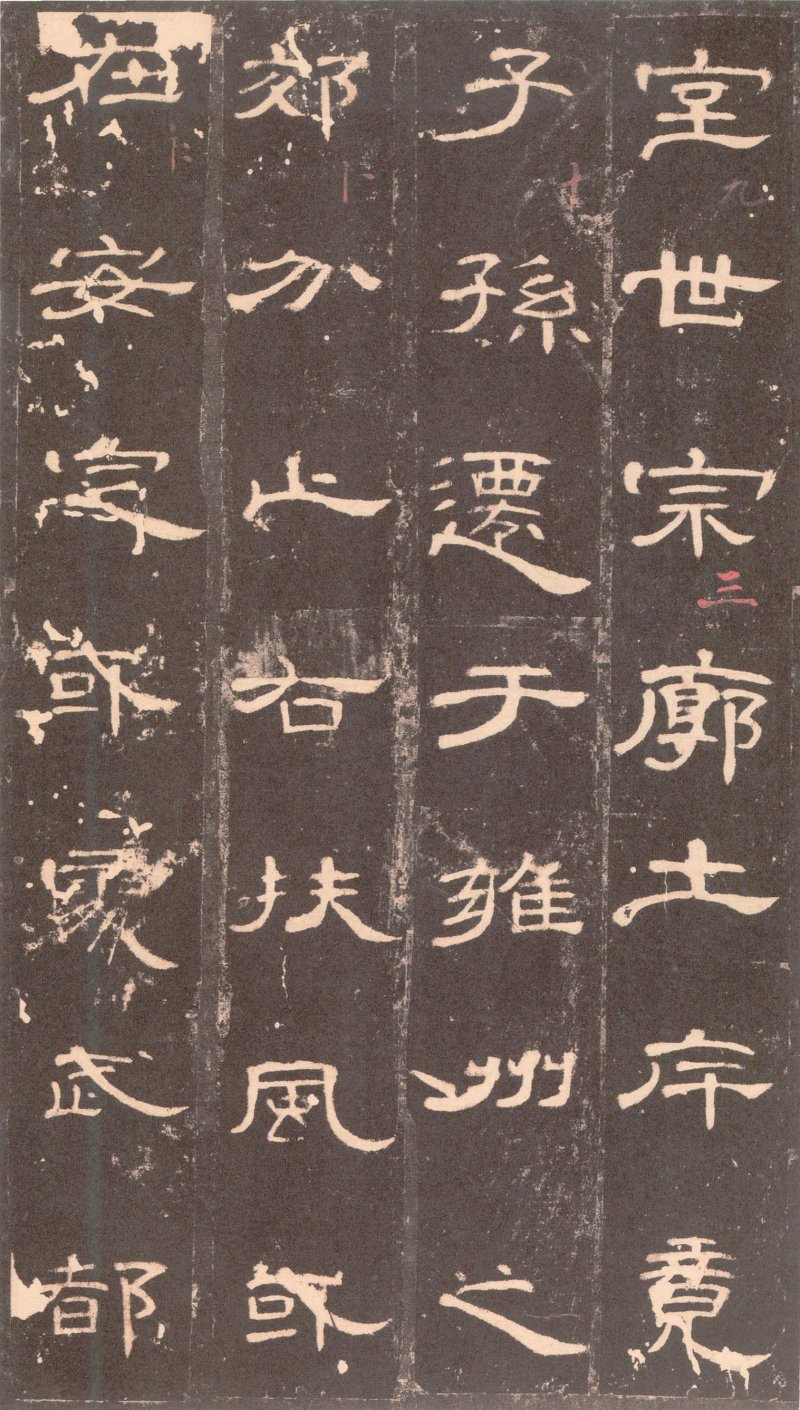 室世宗廓土斥竟
子孫遷于雍州之
郊分止右扶風或
在安定或處武都
九
三
十